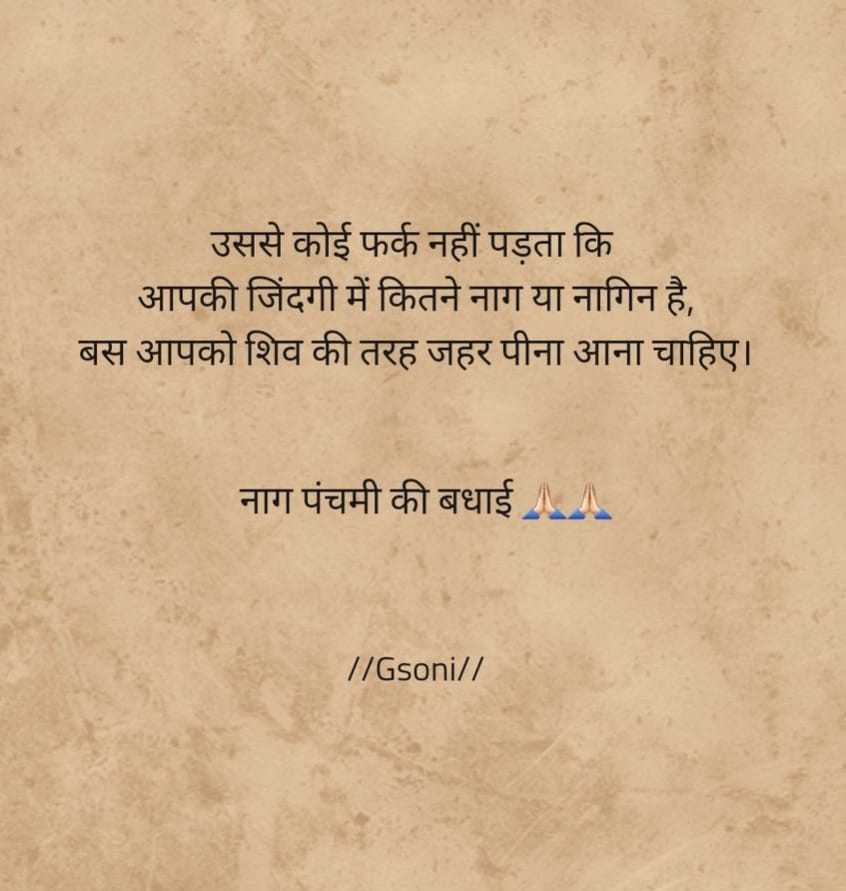 उससे कोई फर्क नहीं पड़ता कि
आपकी जिंदगी में कितने नाग या नागिन है,
बस आपको शिव की तरह जहर पीना आना चाहिए।
नाग पंचमी की बधाई 🙏🏻🙏🏻
//Gsoni//